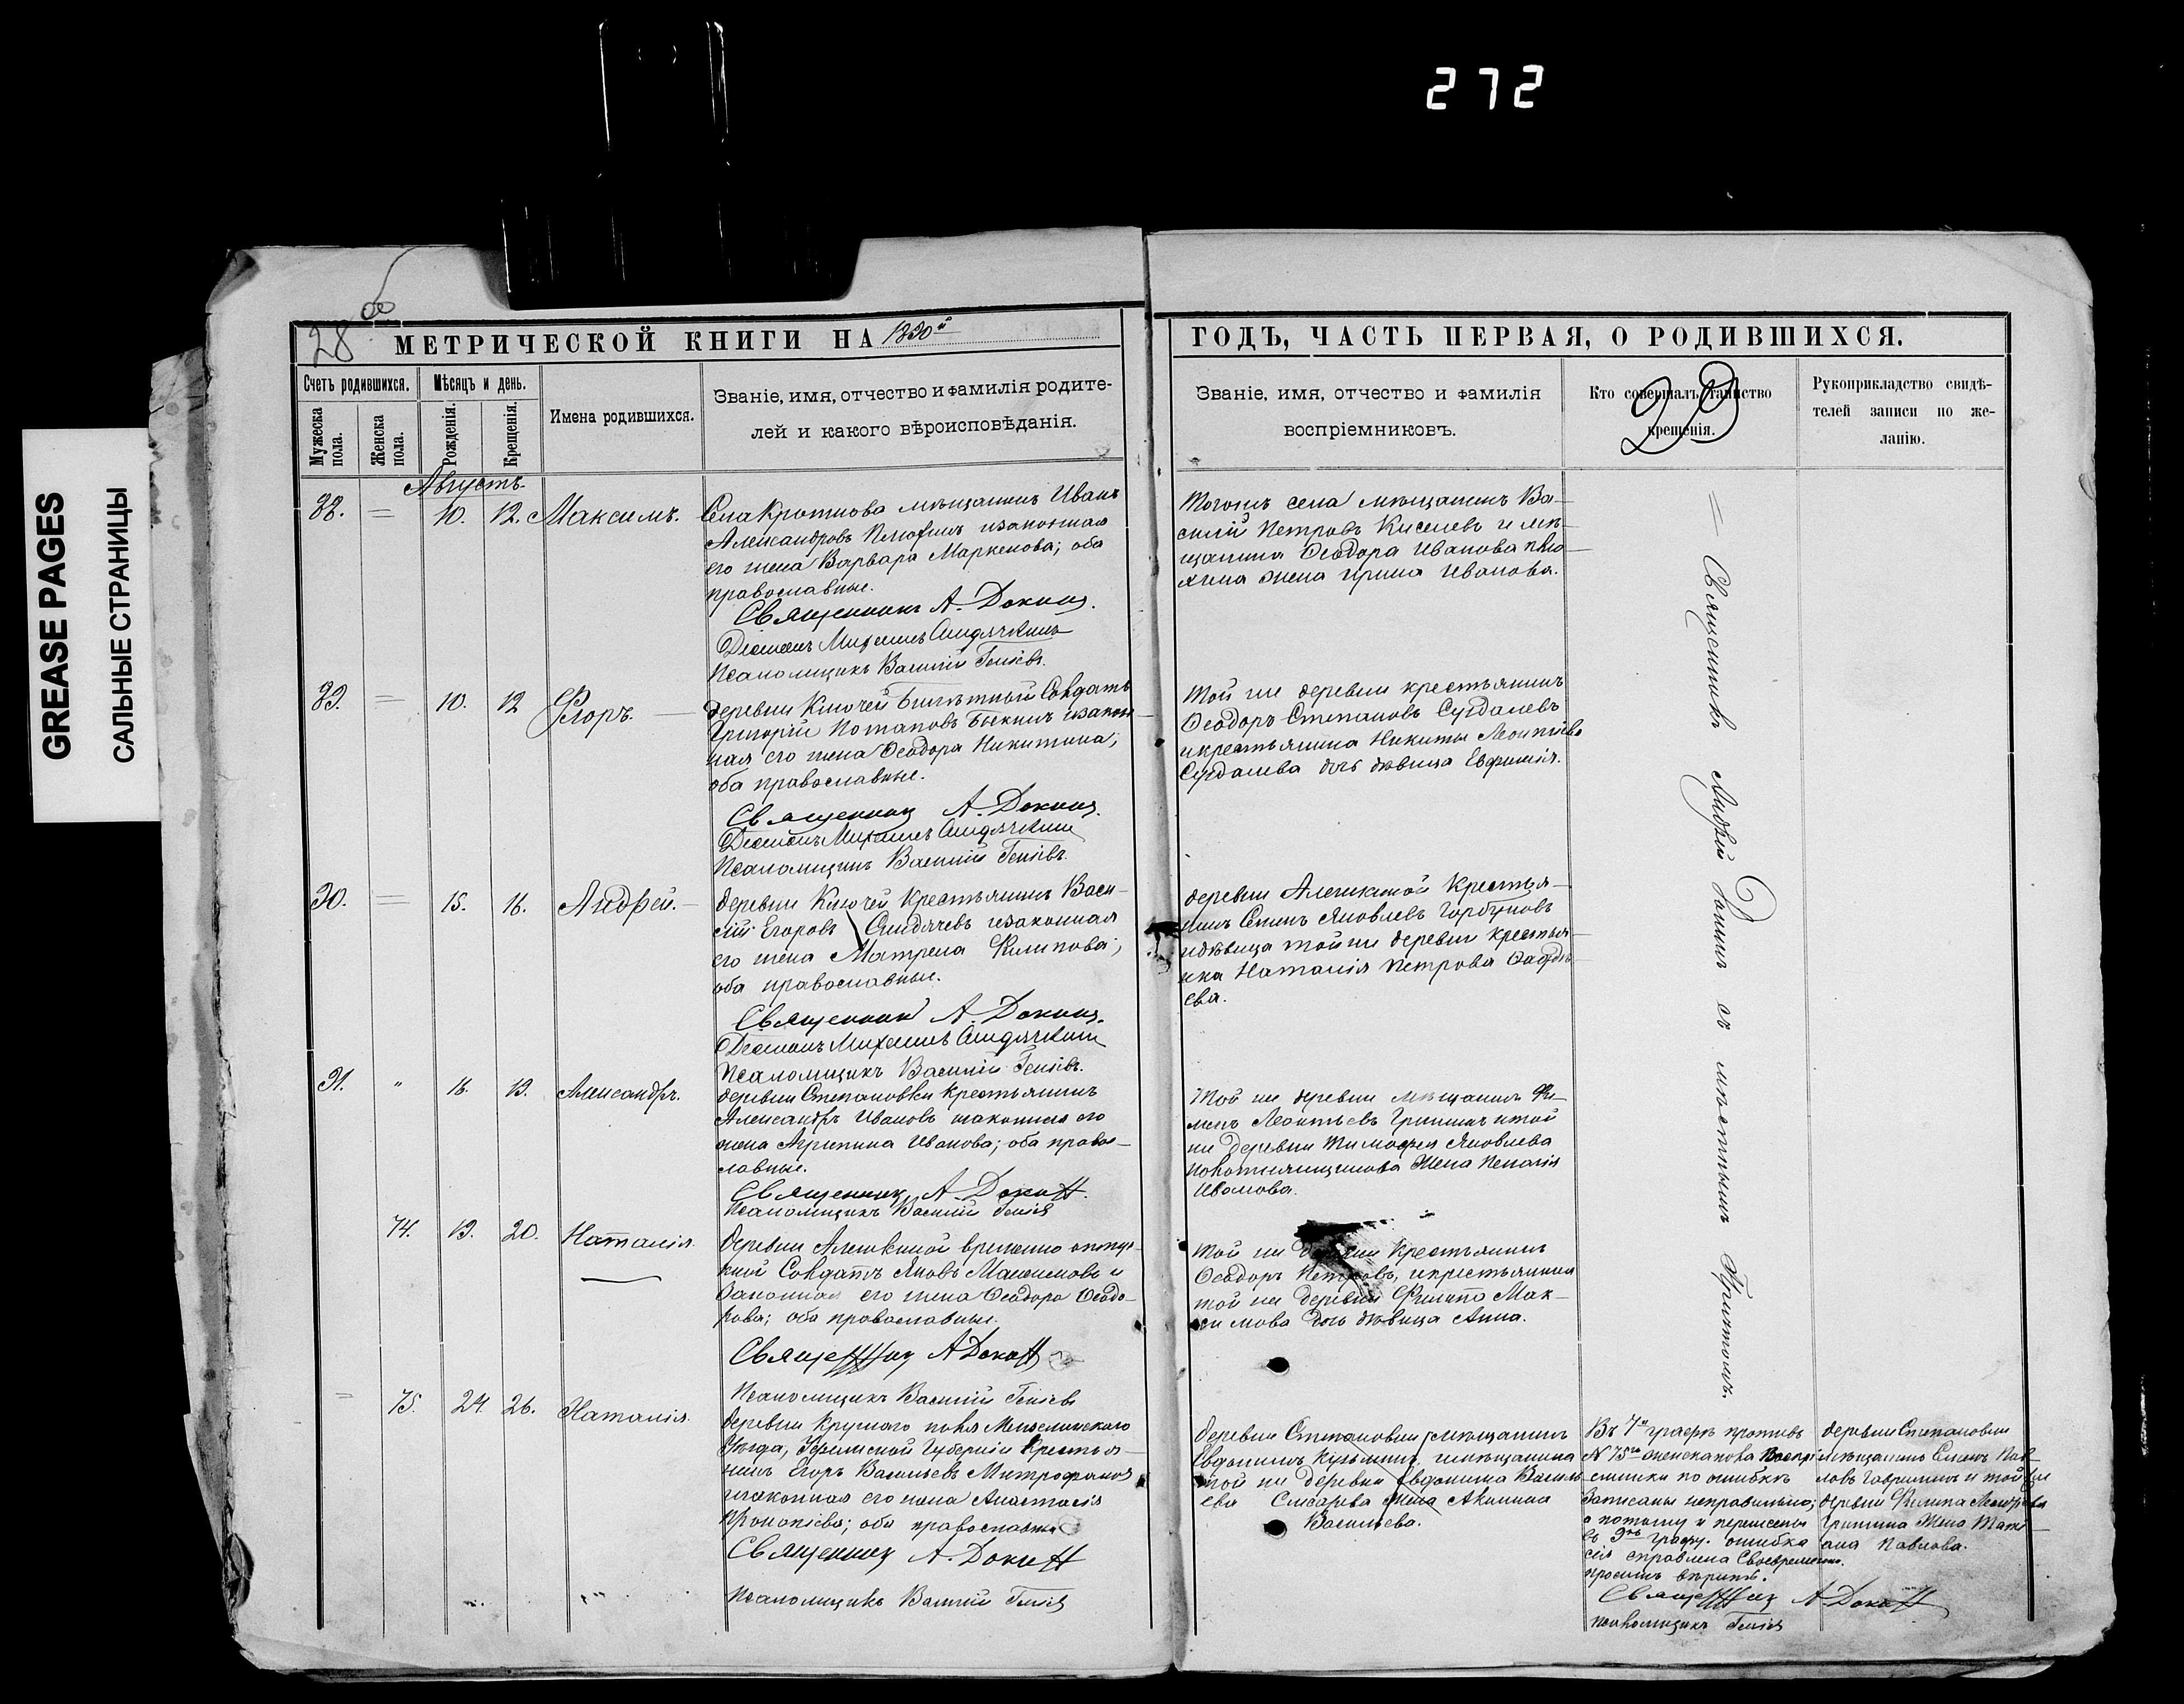 272
GREASE PAGES
САЛЬНЫЕ СТРАНИЦЫ
28
МЕТРИЧЕСКОЙ КНИГИ НА 1890й
ГОДЪ, ЧАСТЬ ПЕРВАЯ, О РОДИВШИХСЯ.
Счетъ родившихся.
Мѣсяцъ и день.
Мужеска пола.
Женска пола.
Рожденія.
Крещенія.
Имена родившихся.
Званіе, имя, отчество и фамилія родите-
лей и какого вѣроисповѣданія.
Званіе, имя, отчество и фамилія
воспріемниковъ.
Кто совершалъ таинство
крещенія.
Рукоприкладство свидѣ-
телей записи по же-
ланію.
Августъ.
88. = 10. 12. Максимъ.
Села Кроткова мѣщанинъ Иванъ
Александровъ изаконная
его жена Варвара Маркелова; оба
православные.
Священникъ А. Докинъ.
Діаконъ Михаилъ
Псаломщикъ Василій
Тогожъ села мѣщанинъ Ва-
силій Петровъ Киселевъ и мѣ-
щанина Ѳеодора Иванова
жена Ирина Иванова.
89. = 10. 12 Флоръ.
деревни Ключей Билѣтный Солдатъ
Григорій Потаповъ Быкинъ изакон-
ная его жена Ѳеодора Никитина;
оба православные.
Священникъ А. Докинъ.
Діаконъ Михаилъ
Псаломщикъ Василій
Той же деревни крестьянинъ
Ѳеодоръ Степановъ Суздалевъ
икрестьянина Никиты Леонтіева
Суздалева дочь дѣвица Евфимія.
90. = 15. 16. Андрей.
деревни Ключей Крестьянинъ Васи-
лій Егоровъ изаконная
его жена Матрена Филипова;
оба православные.
Священникъ А. Докинъ.
Діаконъ Михаилъ
Псаломщикъ Василій
деревни Алешкиной Крестья-
нинъ Яковлевъ Горбуновъ
идѣвица тойже деревни крестьян-
ка Наталія Петрова
ева.
91. " 16. 19. Александръ.
деревни Степановки крестьянинъ
Александръ Ивановъ изаконная его
жена Агрипина Иванова; оба право-
славные.
Священникъ А. Докинъ.
Псаломщикъ Василій
Той же деревни мѣщанинъ
Леонтьевъ Гришинъ итой
же деревни Тимофея Яковлева
жена Пелагія
Иванова.
74. 19. 20. Наталія.
деревни Алешкиной временно отпус-
кной Солдатъ Яковъ Максимовъ и
Законная его жена Ѳеодора Ѳеодо-
рова; оба православные.
Священникъ А Докинъ
Псаломщикъ Василій
Той же деревни Крестьянинъ
Ѳеодоръ Петровъ, икрестьянина
той же деревни Филипа Мак-
симова дочь дѣвица Анна.
= 75. 24 26. Наталія.
деревни Круглаго поля Мензелинскаго
Уѣзда, Уфимской Губерніи Крестья-
нинъ Егоръ Васильевъ Митрофановъ
изаконная его жена Анастасія
Прокопіева; оба православные
Священникъ А. Докинъ
Псаломщикъ Василій
деревни Степановки мѣщанинъ
Евдокимъ Кузьминъ, имѣщанина
той же деревни Евдокима Василь-
ева Слесарева жена Акилина
Васильева.
Въ 7й графѣ противъ
N 75го женскапола Воспрі-
емники по ошибкѣ
записаны неправильно;
а потому и перенесены
въ 9ю графу. ошибка
сія справлена Своевременно.
просимъ вѣрить.
деревни Степановки
мѣщанинъ Пав-
ловъ Гавриловъ и той же
деревни Филипа
Гришина Жена Тать-
яна Павлова.
Священникъ А. Докинъ
псаломщикъ
= Священникъ Андрей Докинъ съ мѣстнымъ Причтомъ.